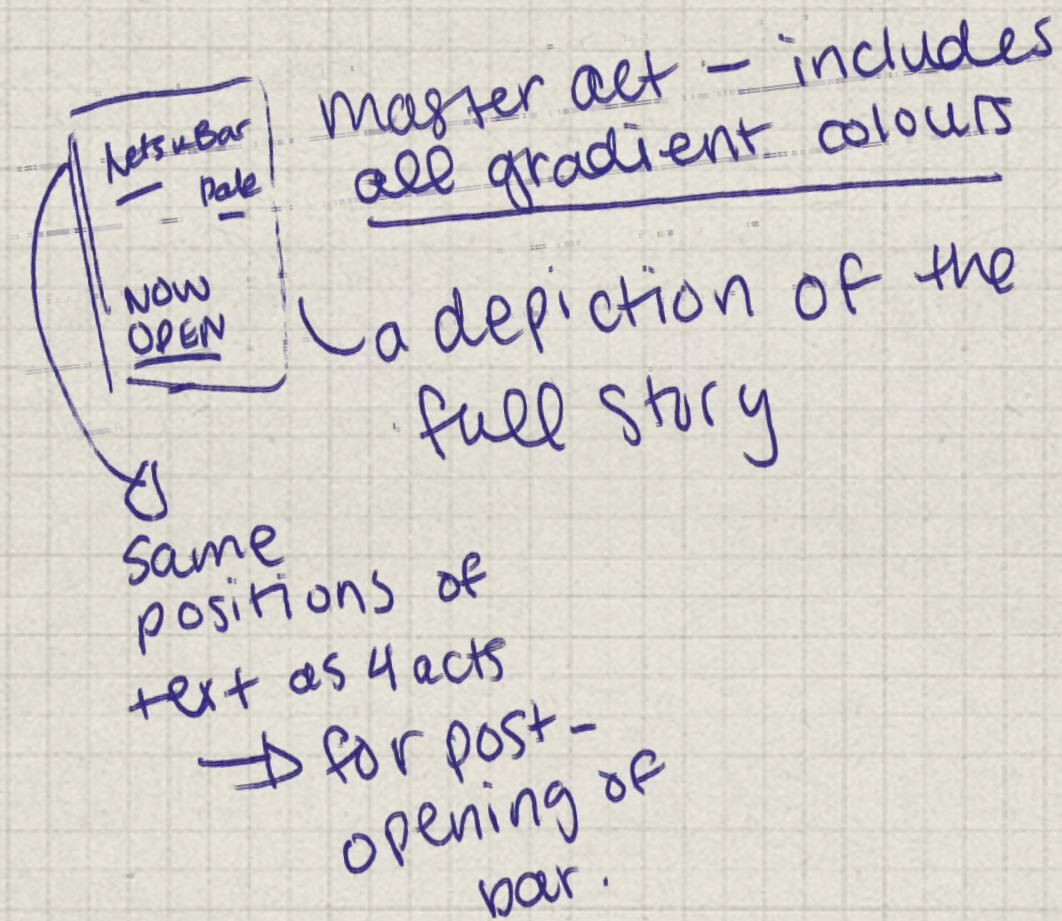 Bar
Date
NOW
OPEN
master act – includes
all gradient colours
a depiction of the
full story
same
positions of
text as 4 acts
⇒ for post-
opening of
bar.